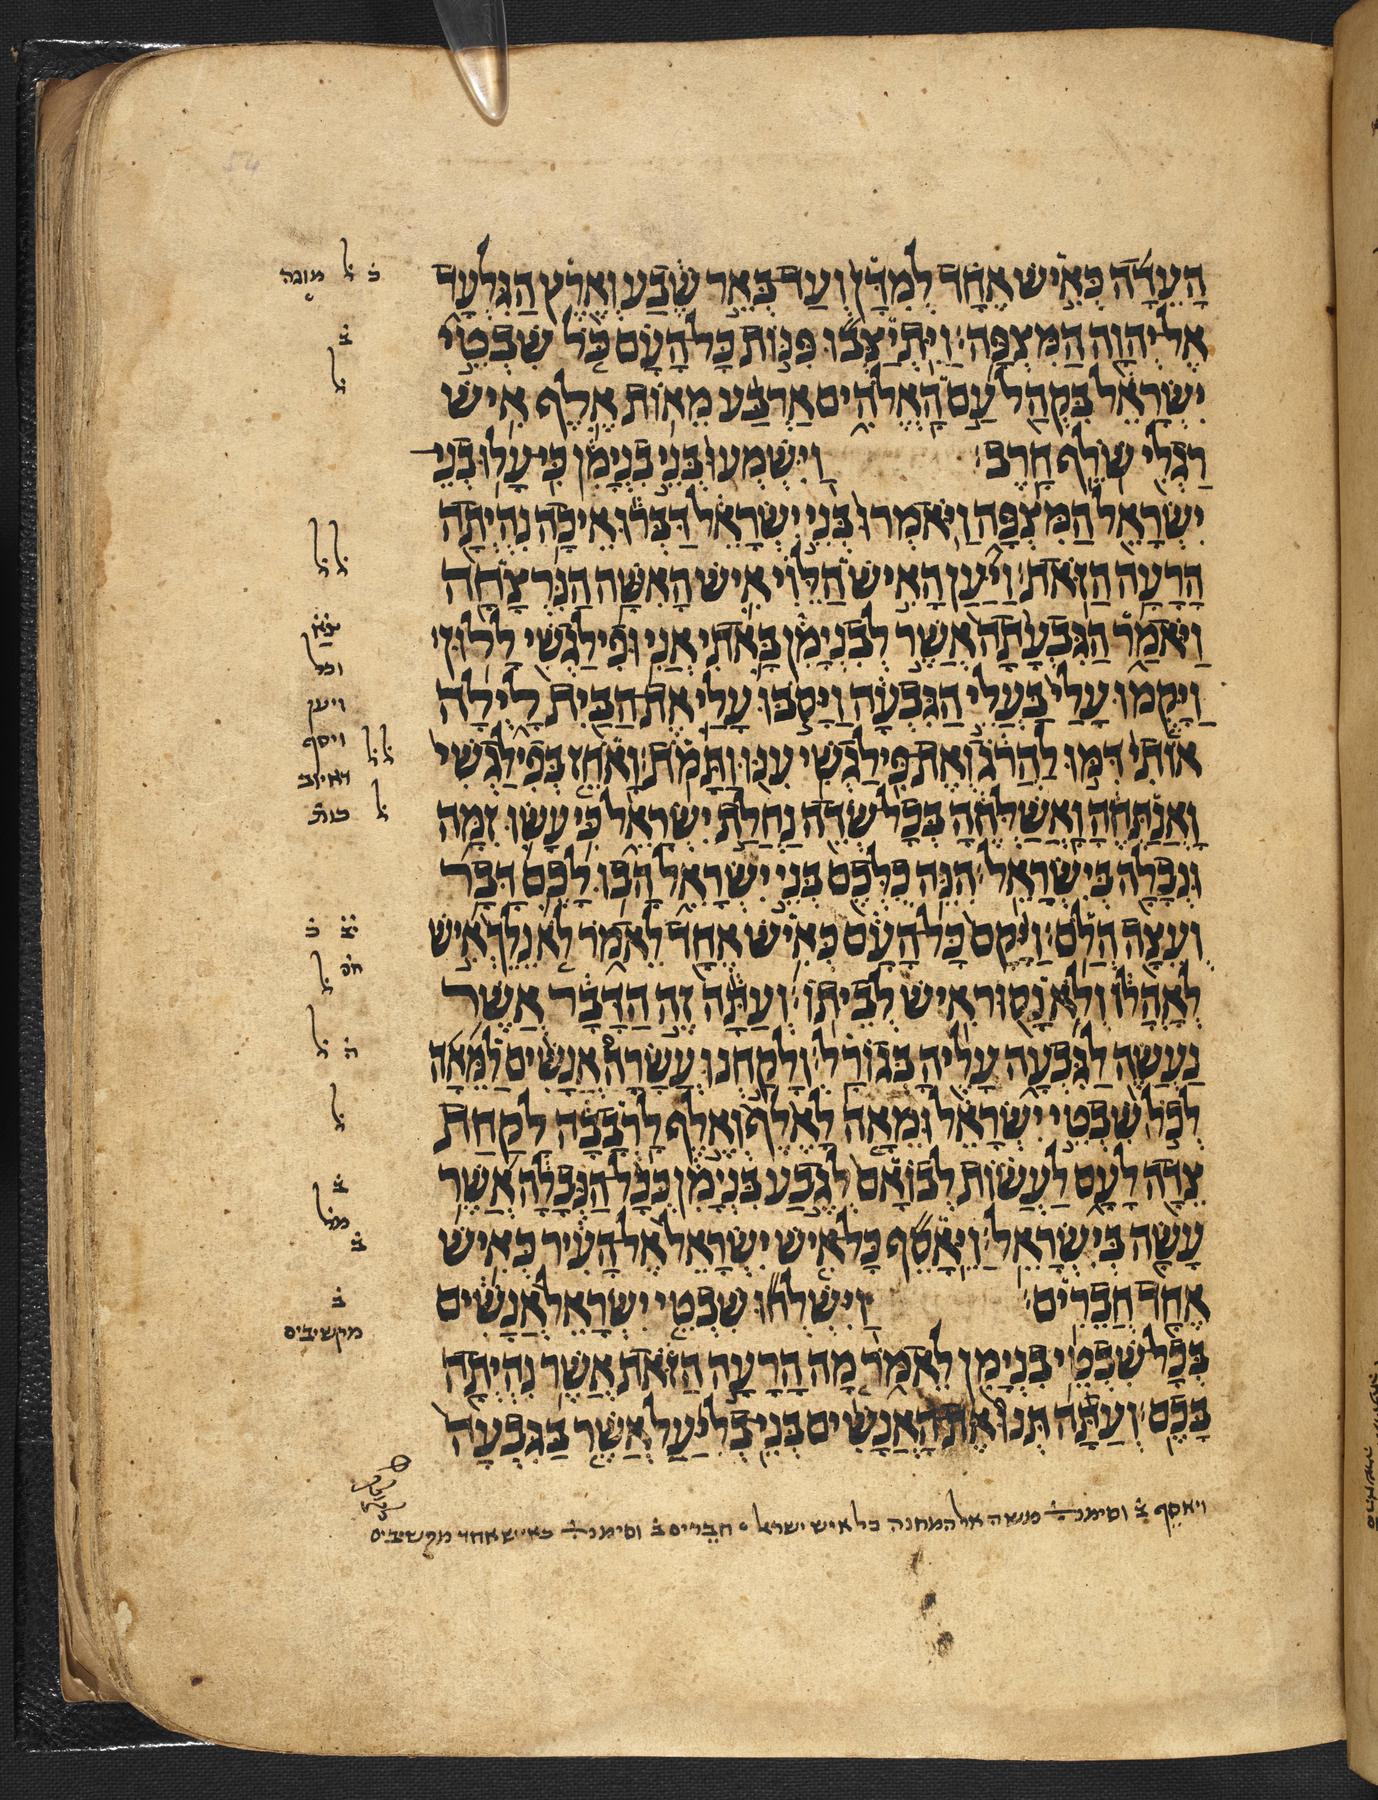 העדה כאיש אחד למדן ועד באר שבע וארץ הגלעד
אל יהוה המצפה׃ ויתיצבו פנות כל העם כל שבטי
ישראל בקהל עם האלהים ארבע מאות אלף איש
רגלי שלף חרב׃ וישמעו בני בנימן כי עלו בני
ישראל המצפה ויאמרו בני ישראל דברו איכה נהיתה
הרעה הזאת׃ ויען האיש הלוי איש האשה הנרצחה
ויאמר הגבעתה אשר לבנימן באתי אני ופילגשי ללון׃
ויקמו עלי בעלי הגבעה ויסבו עלי את הבית לילה
אותי דמו להרג ואת פילגשי ענו ותמת׃ ואחז בפילגשי
ואנתחה ואשלחה בכל שדה נחלת ישראל כי עשו זמה
ונבלה בישראל׃ הנה כלכם בני ישראל הבו לכם דבר
ועצה הלם׃ ויקם כל העם כאיש אחד לאמר לא נלך איש
לאהלו ולא נסור איש לביתו׃ ועתה זה הדבר אשר
נעשה לגבעה עליה בגורל׃ ולקחנו עשרה אנשים למאה
לכל שבטי ישראל ומאה לאלף ואלף לרבבה לקחת
צדה לעם לעשות לבואם לגבע בנימן ככל הנבלה אשר
עשה בישראל׃ ויאסף כל איש ישראל אל העיר כאיש
אחד חברים׃ וישלחו שבטי ישראל אנשים
בכל שבטי בנימן לאמר מה הרעה הזאת אשר נהיתה
בכם׃ ועתה תנו את האנשים בני בליעל אשר בגבעה
ב ל מונה
ב
ל
ל ל
וכל
ויען
ויסף
ל ל
ל
ב
ל
ל
ל
ב
ב
ב
מקשיבים
ויאסף ב וסימנ משה אל המחנה כל איש ישראל חברים ב וסימנ כאיש אחד מקשיבים